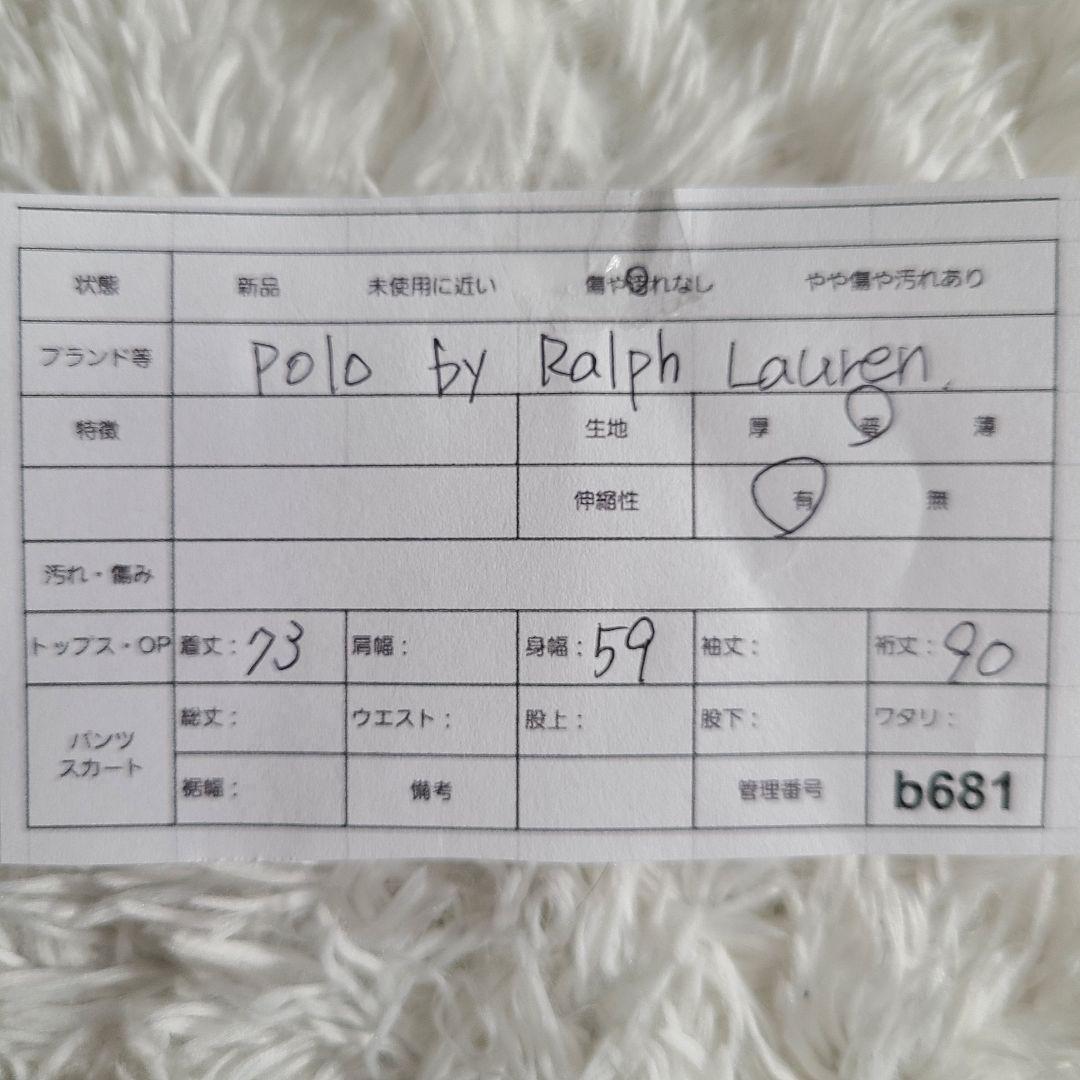 状態 新品 未使用に近い 傷や汚れなし やや傷や汚れあり
ブランド等 Polo by Ralph Lauren.
特徴 生地 厚 普 薄
伸縮性 有 無
汚れ・傷み
トップス・OP 着丈：73 肩幅： 身幅：59 袖丈： 裄丈：90
パンツ
スカート
総丈： ウエスト： 股上： 股下： ワタリ：
裾幅： 備考 管理番号 b681